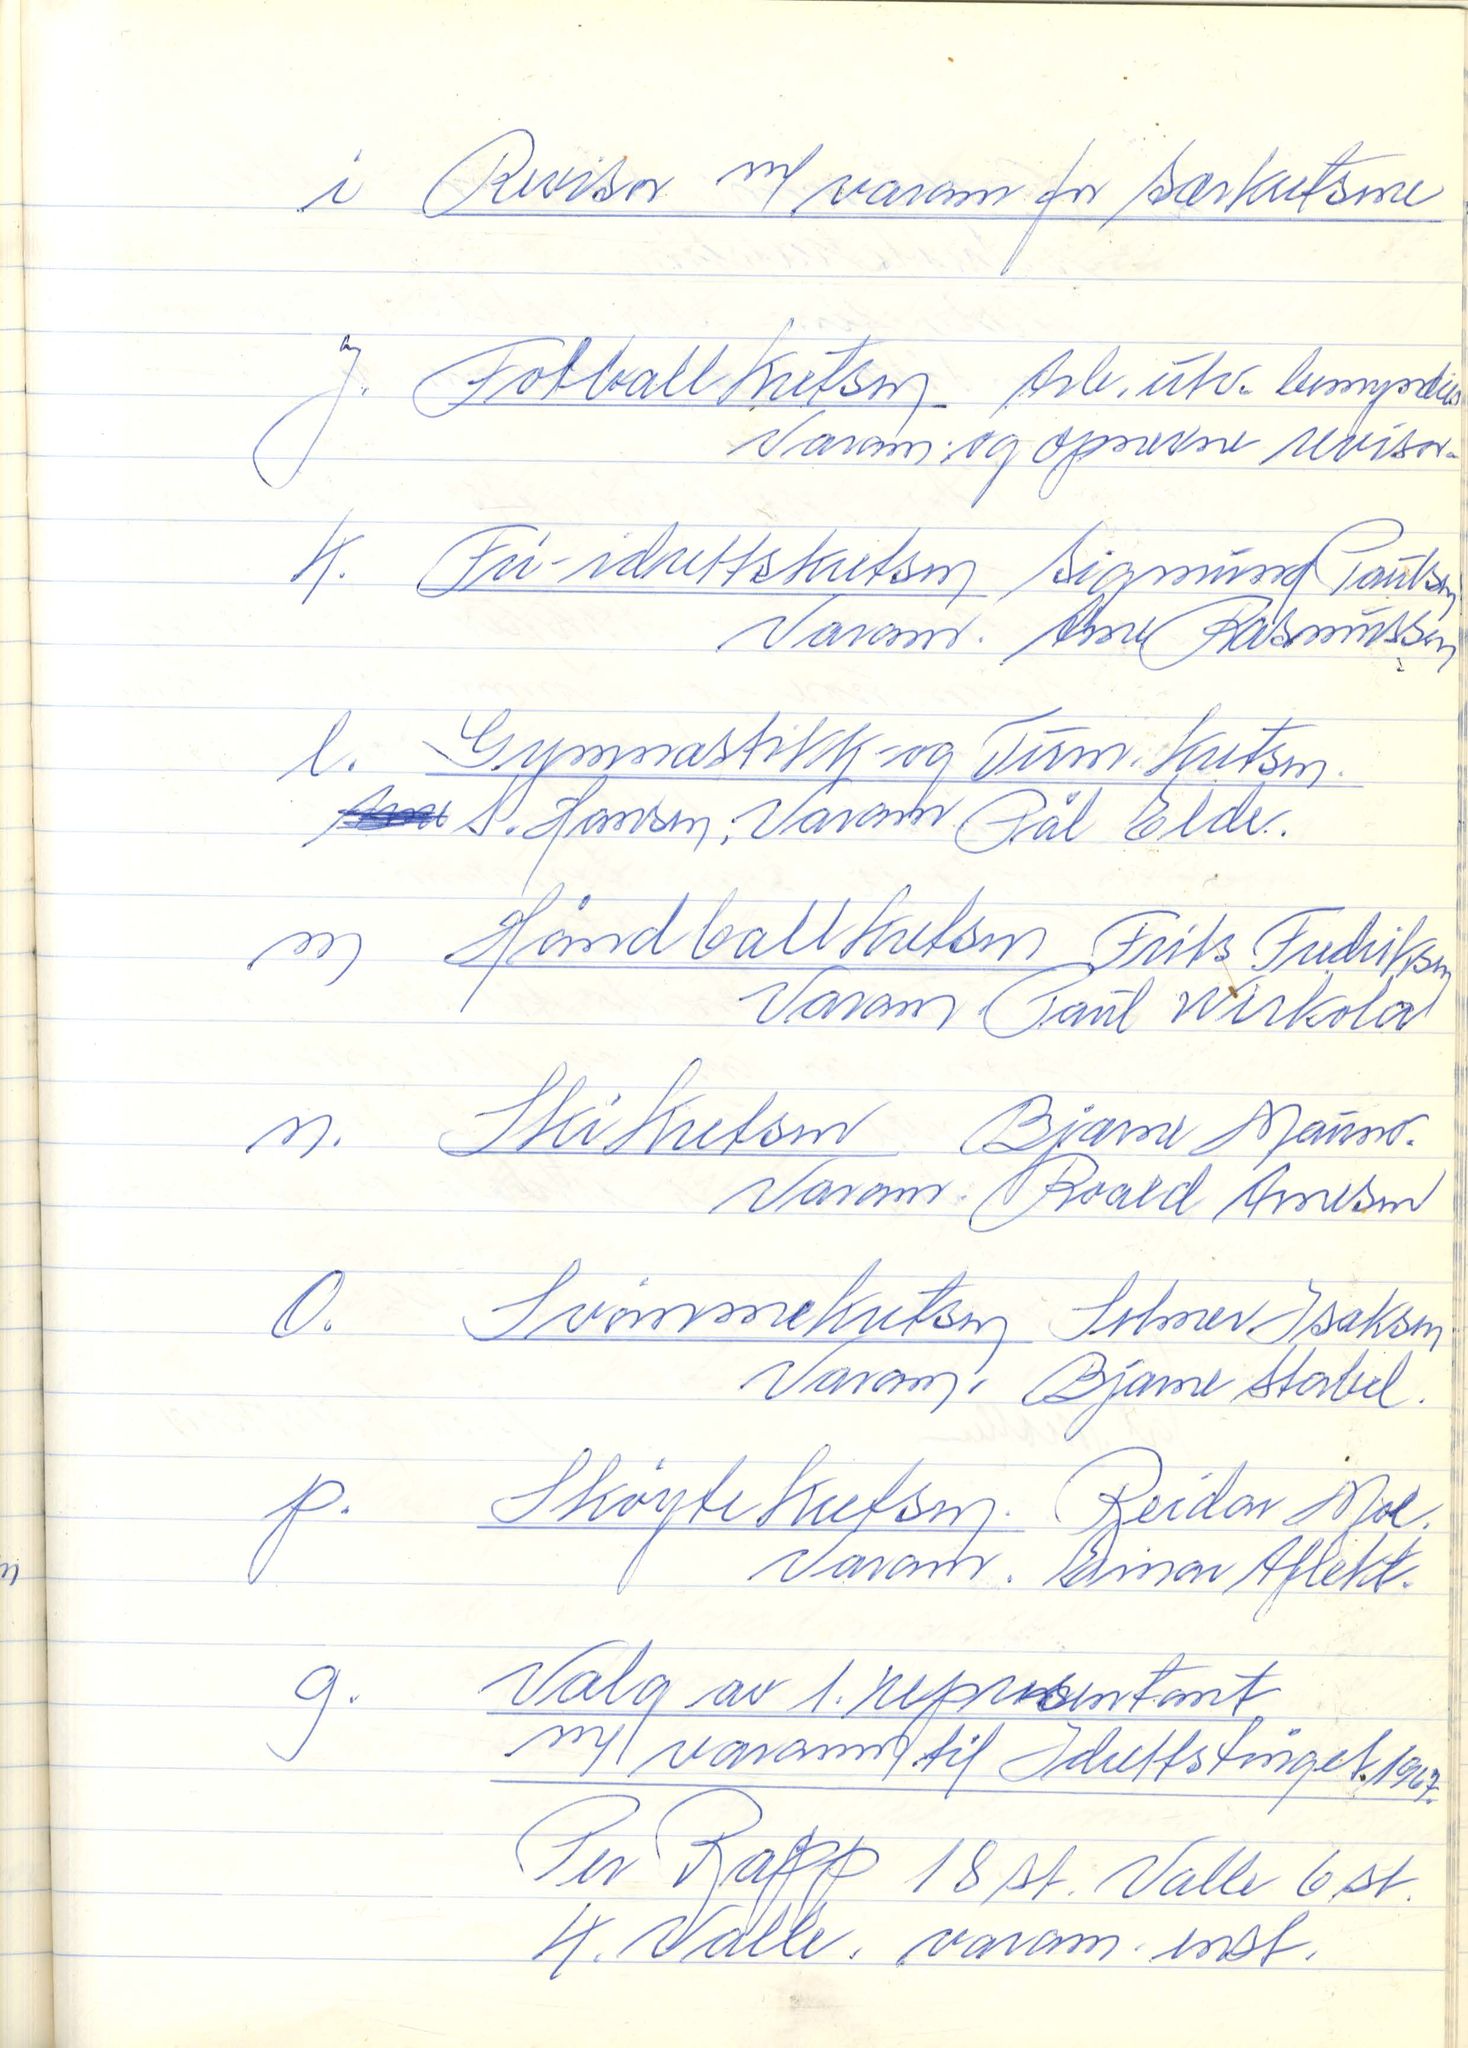 i Revisor m/ varam for særkretsene
j. Fotballkretsen Arb. utv. bemyndiges
Varam. og opnevne revisor.
k. Fri-idrettskretsen Sigmund Paulsen
Varam. Arne Rasmussen
l. Gymnastikk- og Turn. kretsen.
S. Hansen, Varam Pål Elde.
m Håndballkretsen Frits Fredriksen
Varam. Paul Wirkola
n. Skikretsen Bjarne Mauno.
Varam. Roald Arnesen
o. Svømmekretsen Solmer Isaksen
Varam. Bjarne Stabel.
p. Skøytekretsen. Reidar Moe.
Varam. Einar Aflekt.
q. Valg av 1. representant
m/ varam til Idrettstinget 1967.
Per Rapp 18 st. Valle 6 st.
K. Valle. varam. enst.